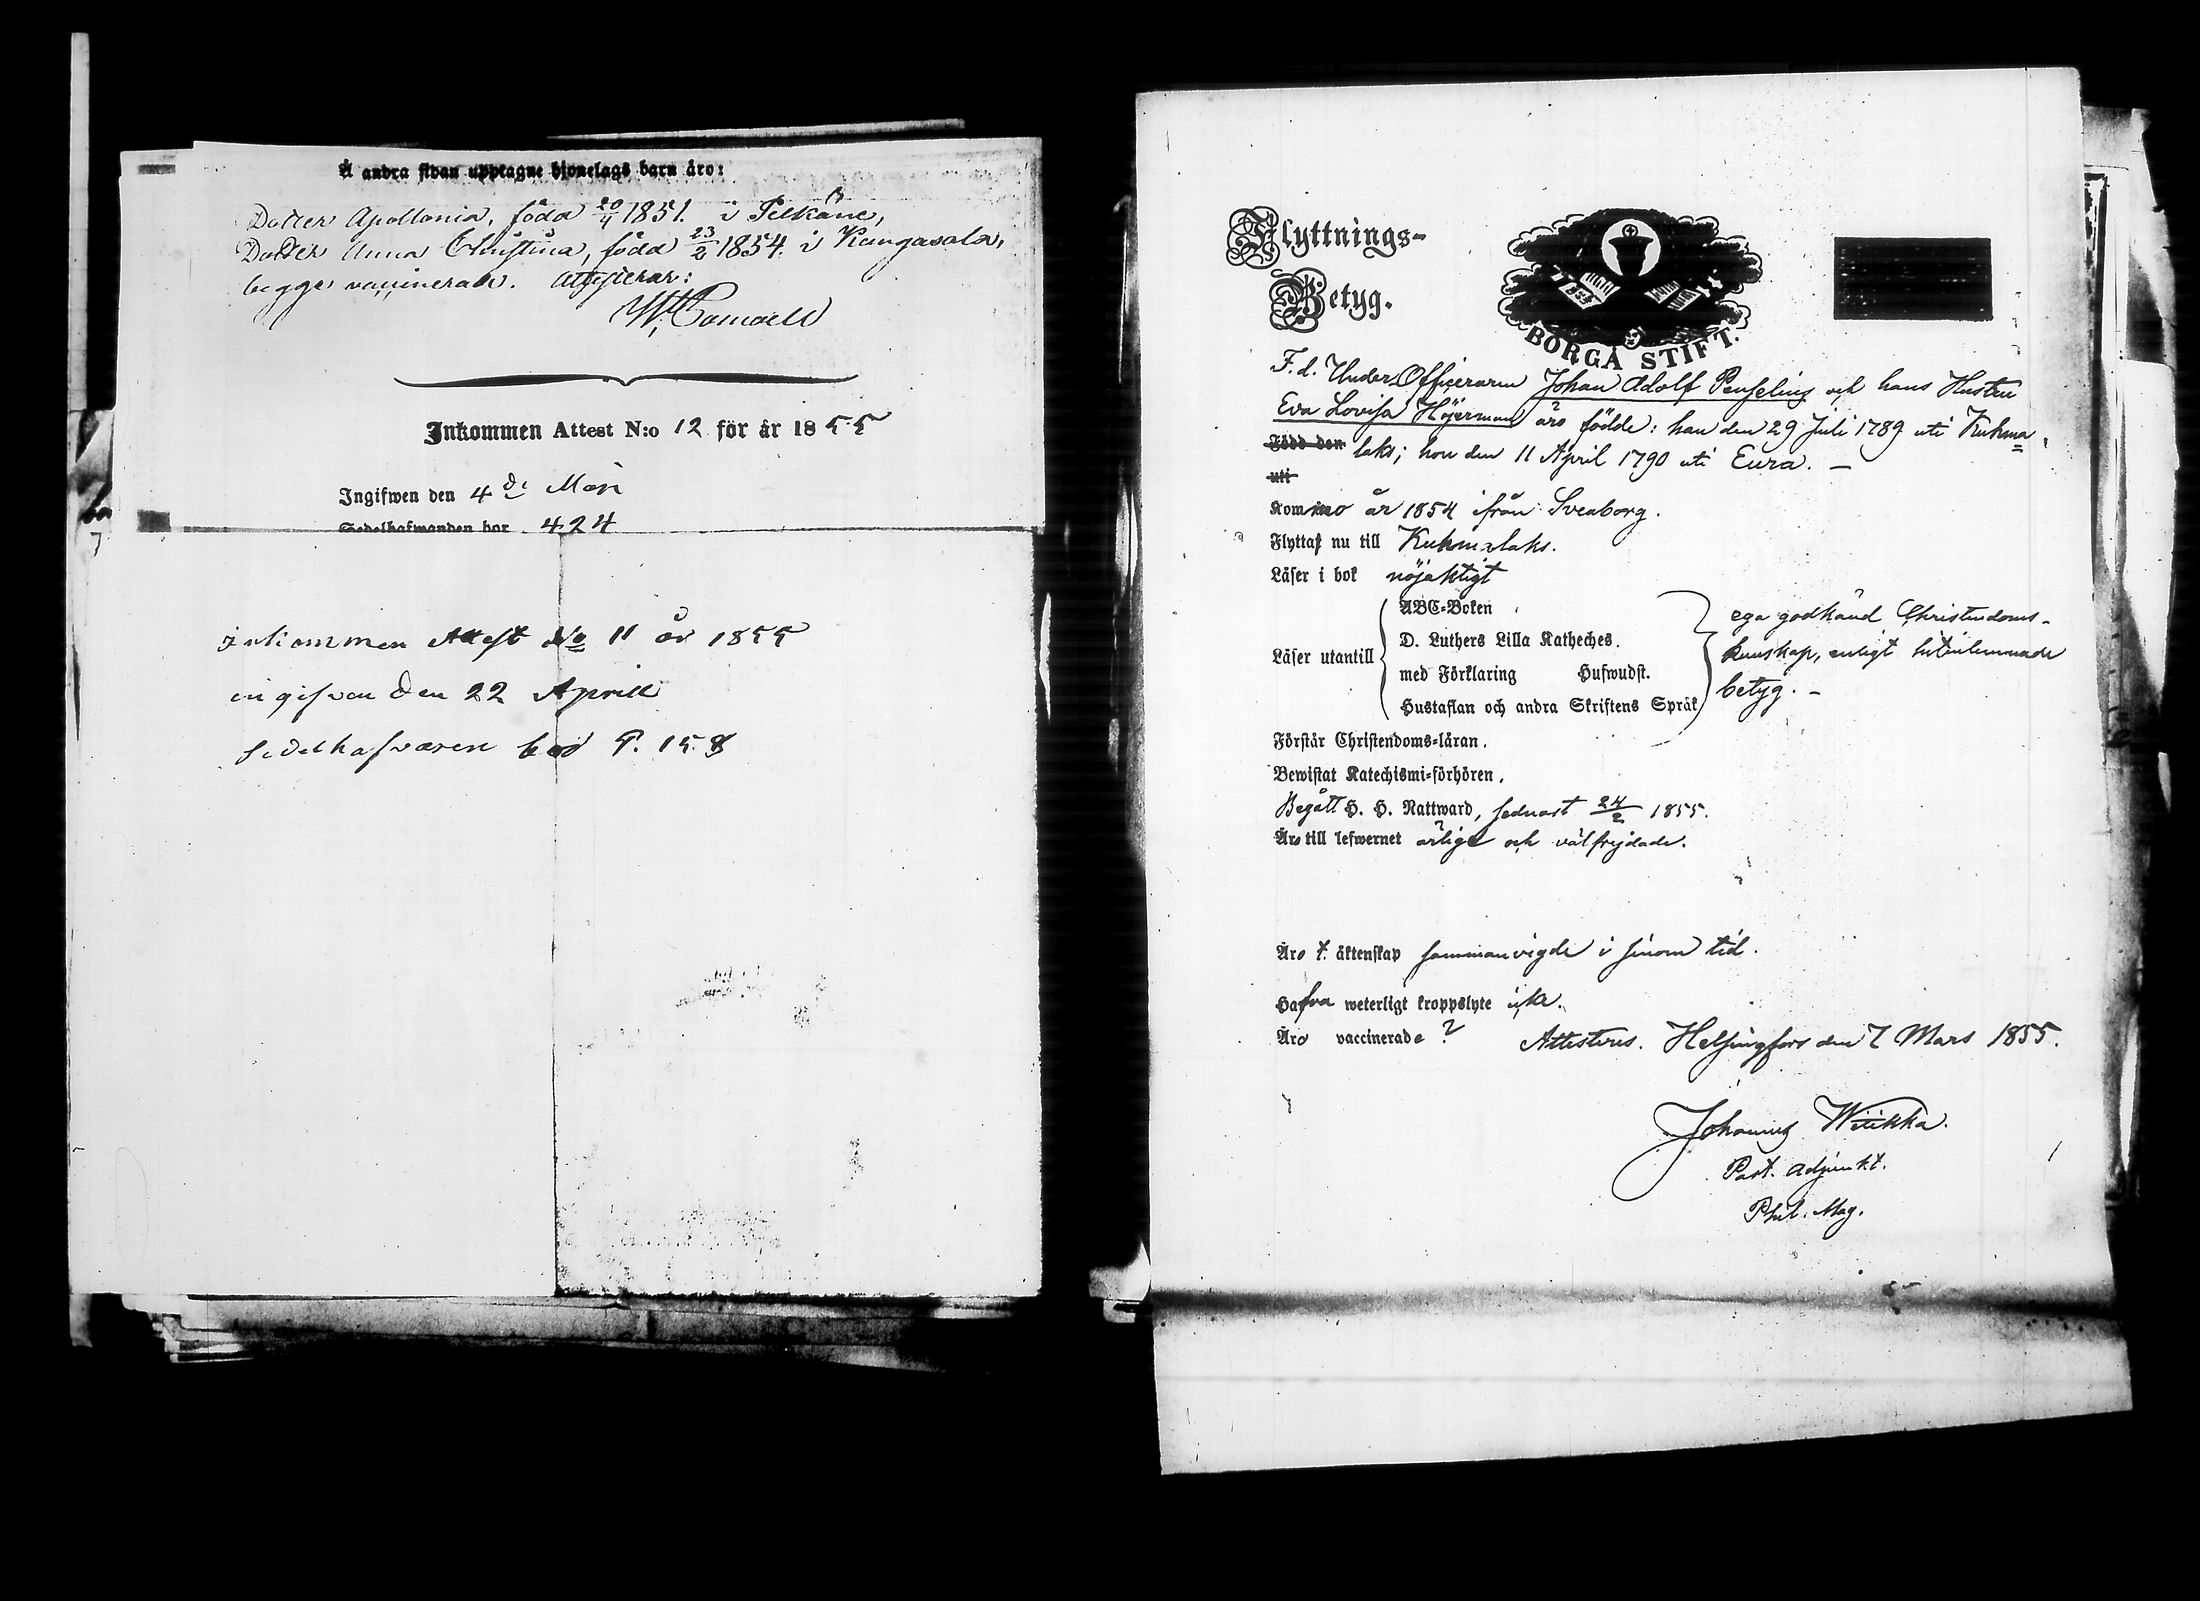 Å andra sidan upptagne hjonelags barn äro:
Dotter Apollonia, född 20/4 1851. i Pelkäne,
Dotter Anna Christina, född 23/2 1854. i Kangasala,
begge vaccinerade. Attesterar:
Inkommen Attest N:o 12 för år 1855
Ingifwen den 4de Maji
Sedelhafwanden bor 424
Inkommen Attest No 11 år 1855
ingifven den 22 Aprill
sedelhafvaren bor P. 158
Flyttnings-
Betyg.
BORGÅ STIFT.
F. d. Under Officeraren Johan Adolf Penselius och hans Hustru
Eva Lovisa Höjerman äro födde: han den 29 Juli 1789 uti Kuhma=
Född den laks; hon den 11 April 1790 uti Eura. —
uti
Kommo år 1854 ifrån Sveaborg.
Flyttas nu till Kuhmalaks.
Läser i bok nöjaktigt
ABC-Boken
D. Luthers Lilla Katheches.
Läser utantill
med Förklaring Hufwudst.
Hustaflan och andra Skriftens Språk
ega godkänd Christendoms-
kunskap, enligt hitinlemnade
betyg. —
Förstår Christendoms-läran.
Bewistat Katechismi-förhören.
Begått H. H. Nattward, sednast 24/2 1855.
Äro till lefwernet ärlige och välfrejdade.
Äro t. äktenskap sammanvigde i sinom tid.
Hafva weterligt kroppslyte icke.
Äro vaccinerade? Attesteras. Helsingfors den 7 Mars 1855.
Johannes Witikka.
Past. adjunkt.
Phil. Mag.